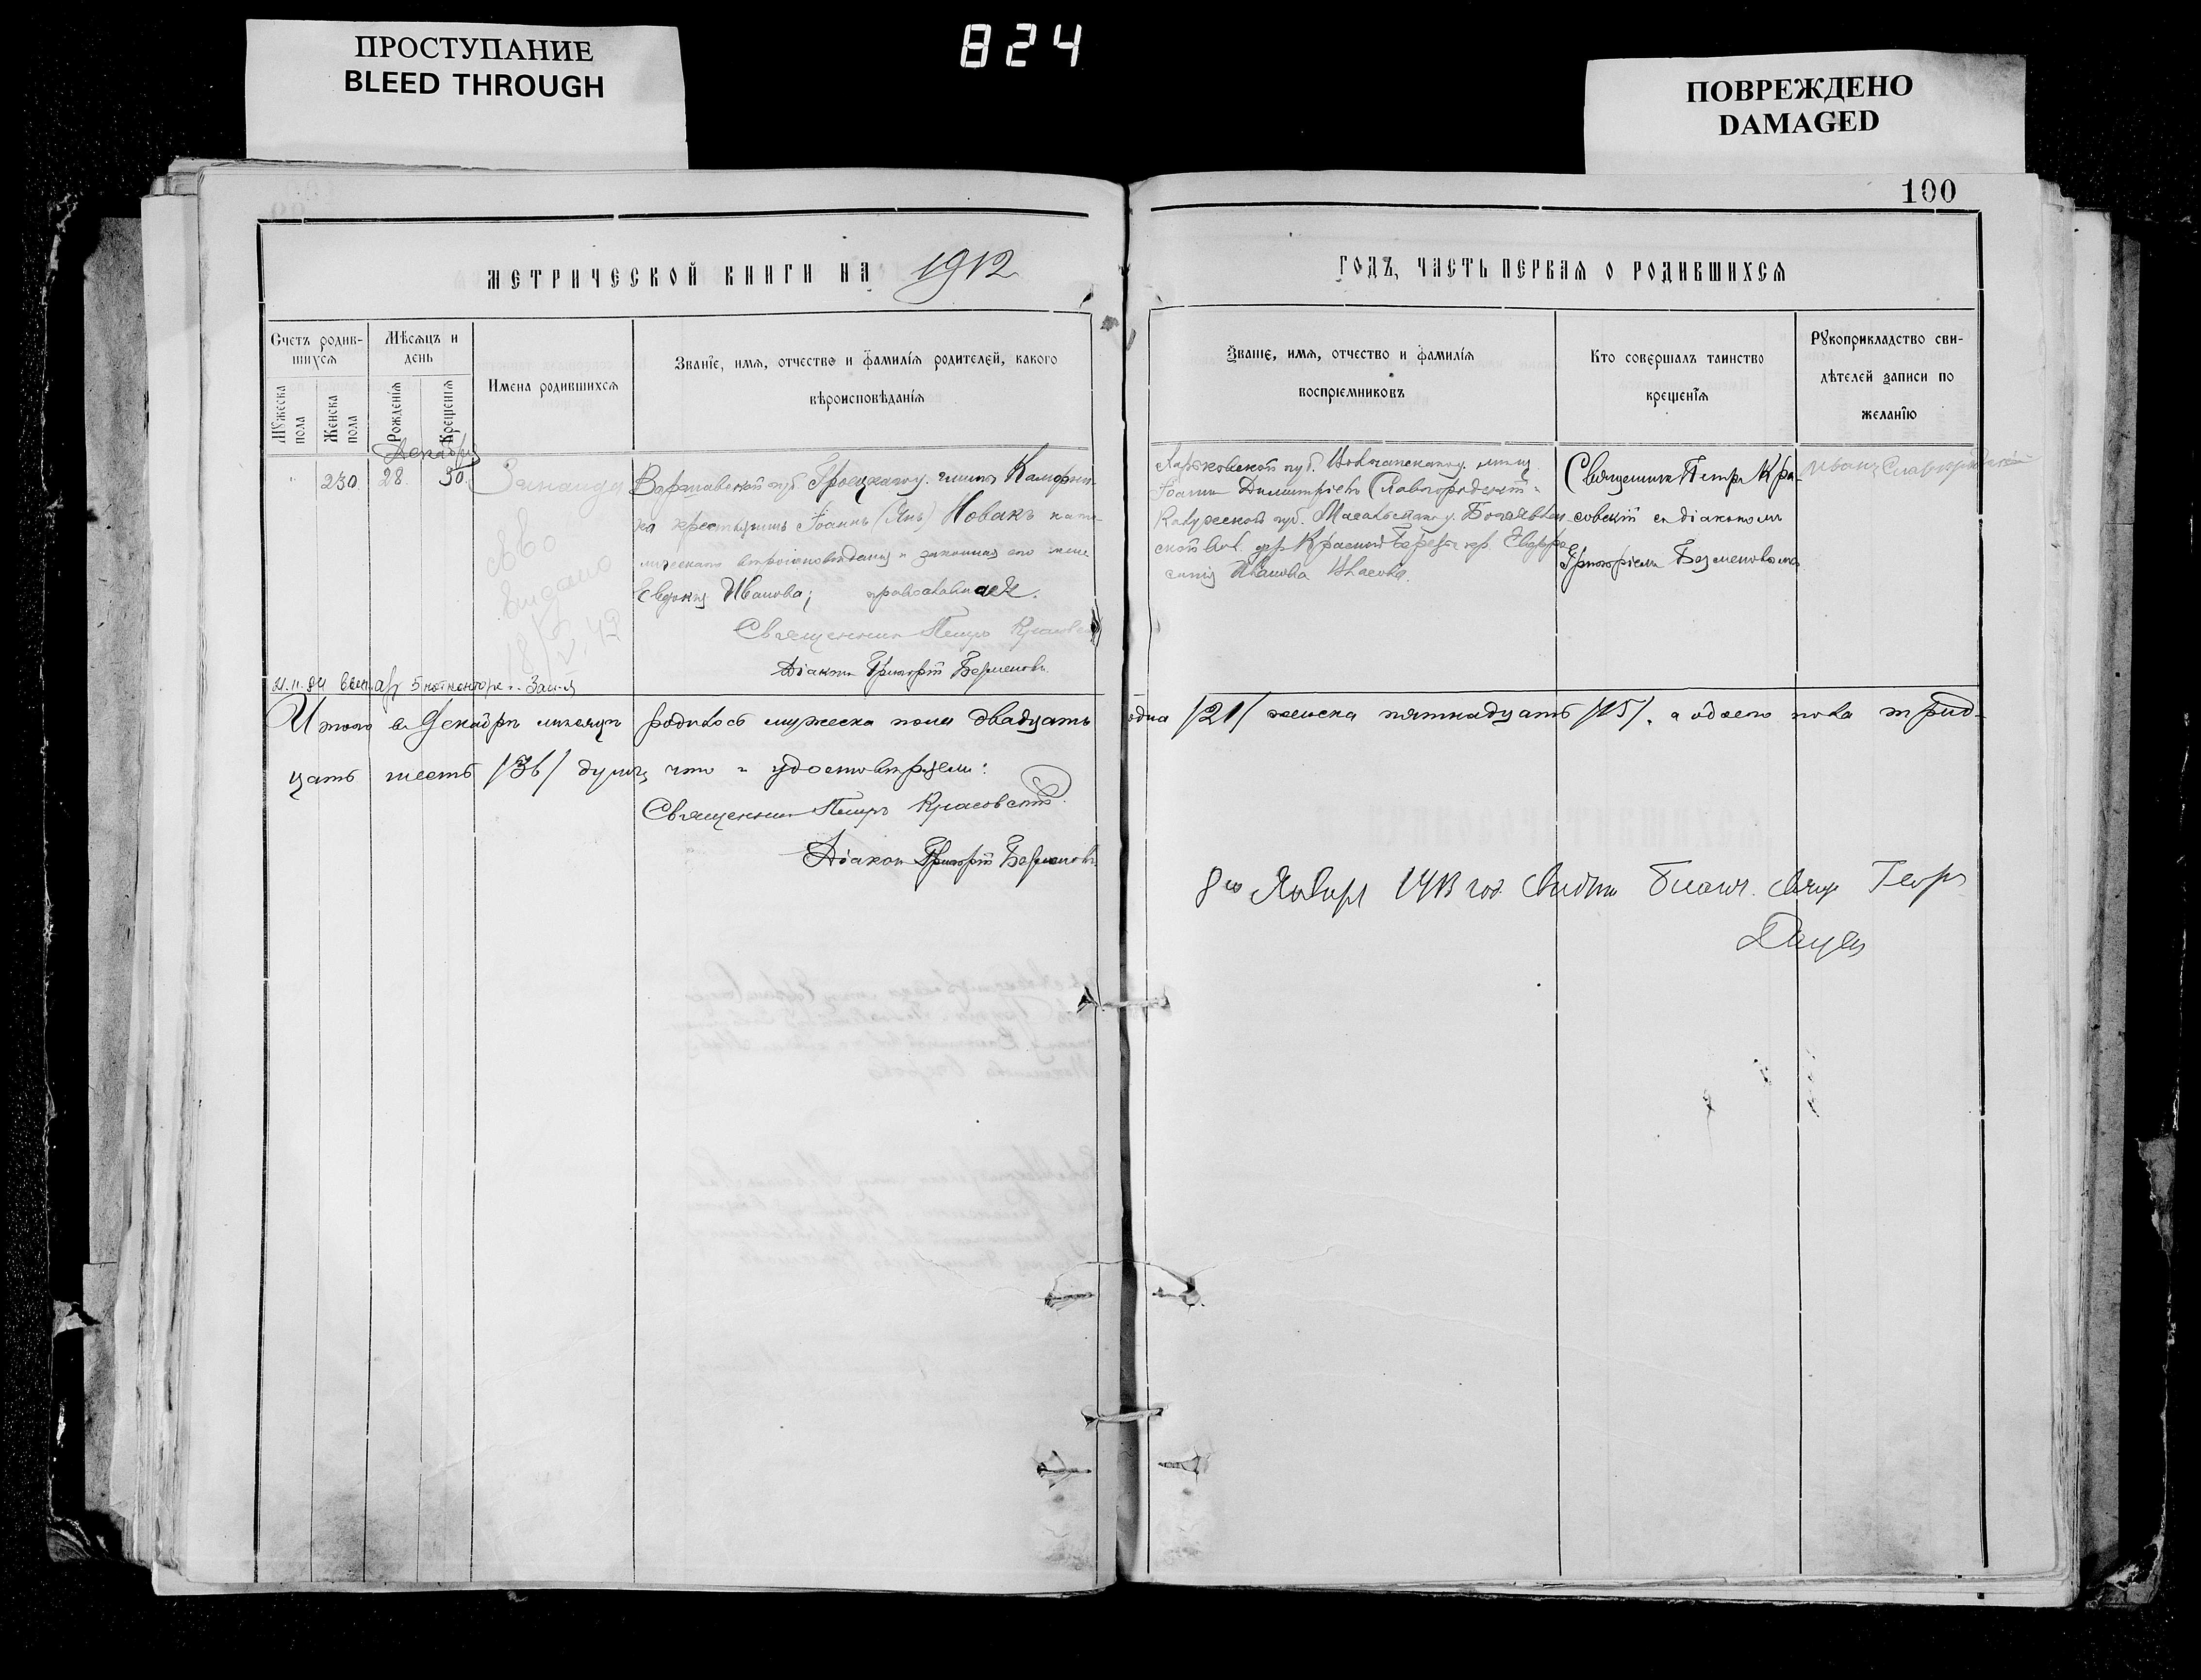 ПРОСТУПАНИЕ
BLEED THROUGH
824
ПОВРЕЖДЕНО
DAMAGED
100
МЕТРИЧЕСКОЙ КНИГИ НА 1912
ГОДЪ, ЧАСТЬ ПЕРВАЯ О РОДИВШИХСЯ
Счетъ родив-
шихся
Мужеска пола
Женска пола
Мѣсяцъ и
день
Рожденія
Крещенія
Имена родившихся
Званіе, имя, отчество и фамилія родителей, какого
вѣроисповѣданія
Званіе, имя, отчество и фамилія
воспріемниковъ
Кто совершалъ таинство
крещенія
Рукоприкладство сви-
дѣтелей записи по
желанію
Декабрь
230 28. 30. Зинаида
Варшавской губ. Гроецкаго у. гмины
крестьянинъ Іоаннъ (Янъ) Новакъ като-
лическаго вѣроисповѣданія и законная его жена
Евдокія Иванова; православная.
Священникъ Петръ Красовскій
Діаконъ Григорій Безменовъ
св-во
выдано
18/V 42
21.11.84
Харьковской губ. Волчанскаго у. мѣщ.
Іоаннъ Димитріевъ Славгородскій и
Калужской губ. Масальскаго у. Богоявлен-
ской вол. дер. Красный Берегъ кр. Евфро-
синія Иванова Власова.
Священникъ Петръ Кра-
совскій съ діакономъ
Григоріемъ Безменовымъ
Иванъ Славгородскій
Итого въ Декабрѣ мѣсяцѣ родилось мужеска пола двадцать одна /21/ женска пятнадцать /15/, а обоего пола трид-
цать шесть /36/ душъ, что и удостовѣряемъ:
Священникъ Петръ Красовскій
Діаконъ Григорій Безменовъ
8го Января 1913 год.